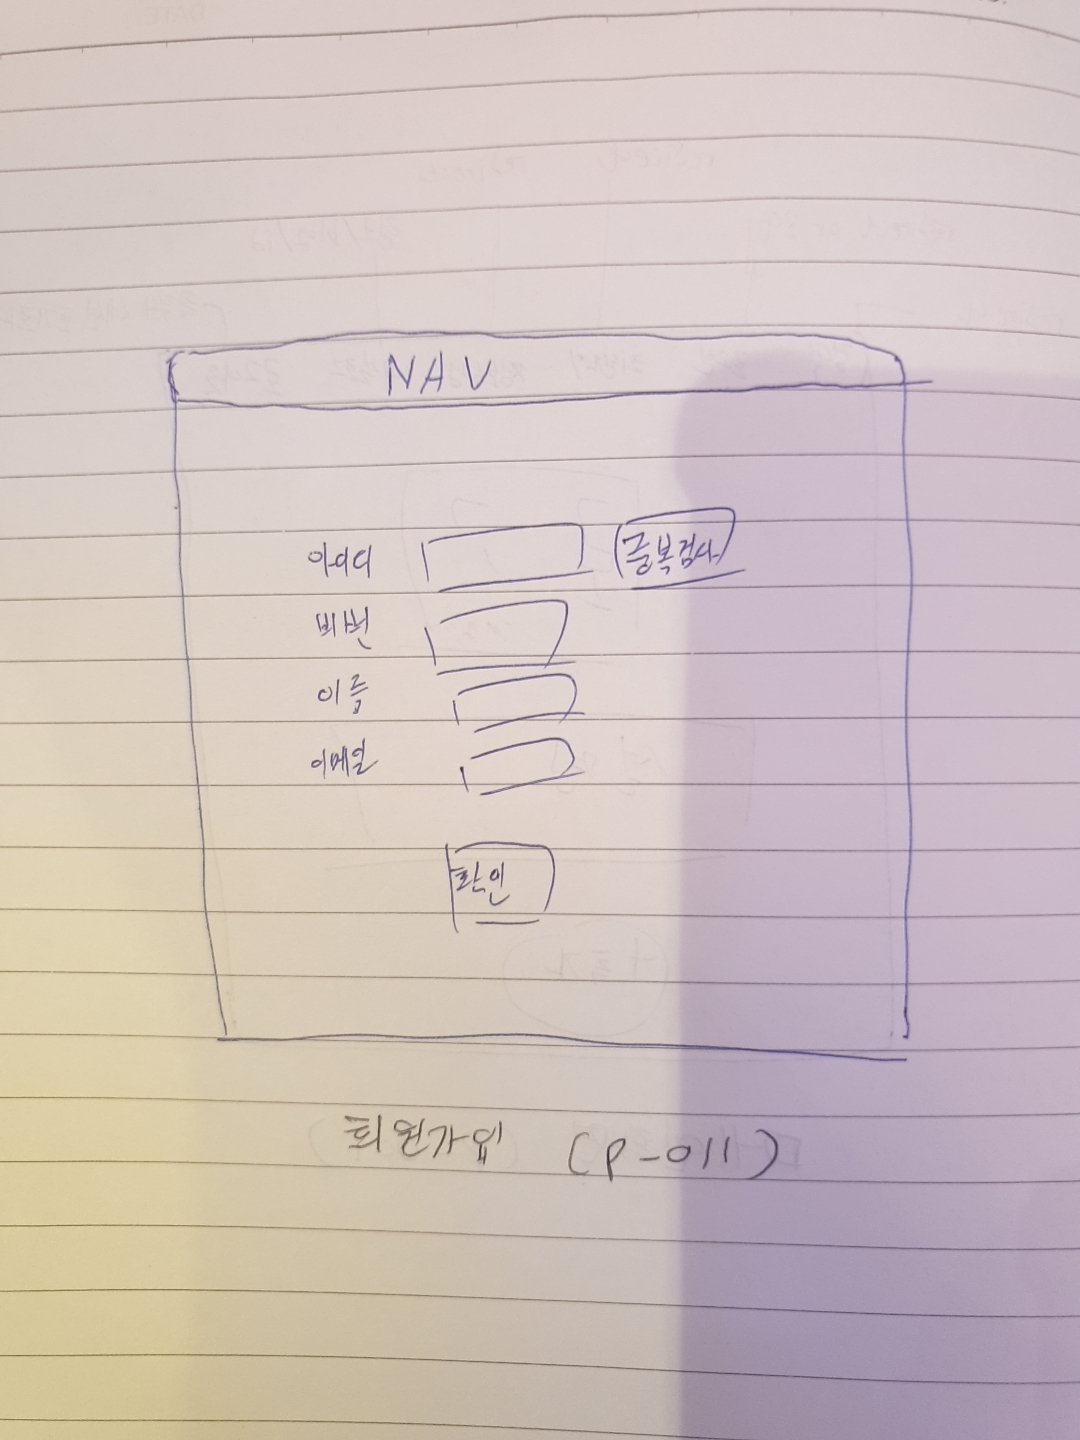 NAV
아이디 중복검사
비번
이름
이메일
확인
회원가입 (P-011)